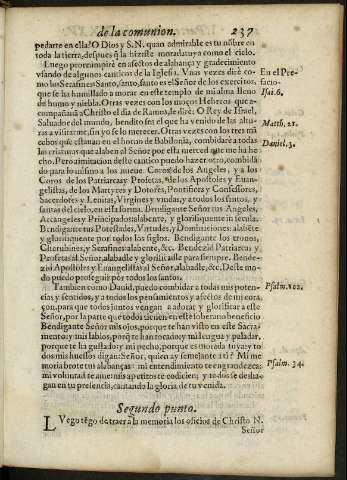 de la comunion. 237
pedarte en ella? O Dios y S.N. quan admirable es tu nõbre en
toda la tierra, despues q̃ la hiziste morada tuya como el cielo.
Luego prorrumpirè en afectos de alabança y gradecimiento
vsando de algunos canticos de la Iglesia. Vnas vezes dirè co-
En el Pre-
mo los Serafines Santo, santo, santo es el Señor de los exercitos,
facio.
que se ha humillado a morar en este templo de mi alma lleno
Isai. 6.
de humo y niebla. Otras vezes con los moços Hebreos que a-
compañauã a Christo el dia de Ramos, le dirè: O Rey de Israel,
Saluador del mundo, bendito sea el que ha venido de las altu-
Matth. 21.
ras a visitarme, sin yo se lo merecer. Otras vezes con los tres mã
cebos que estauan en el horno de Babilonia, combidarè a todas
Daniel. 3.
las criaturas que alaben el Señor por esta merced que me ha he
cho. Pero a imitacion deste cantico puedo hazer otro, combidã
do para lo mismo a los nueue Coros de los Angeles, y a los
Coros de los Patriarcas y Profetas, de los Apostoles y Euan-
gelistas, de los Martyres y Dotores, Pontifices y Confessores,
Sacerdotes y Leuitas, Virgines y viudas, y a todos los santos, y
santas del cielo, en esta forma. Bendigante Señor tus Angeles,
Arcangeles y Principados: alabente, y glorifiquente in sęcula.
Bendigante tus Potestades, Virtudes, y Dominaciones: alabẽte
y glorifiquente por todos los siglos. Bendigante los tronos,
Cherubines, y Serafines: alabente, &c. Bendezid Patriarcas y
Profetas al Señor, alabadle y glorificadle para siempre. Bende-
zid Apostoles y Euangelistas al Señor, alabadle, &c. Deste mo-
do puedo proseguir por todos los santos.
Tambien como Dauid, puedo combidar a todas mis poten-
Psalm. 102.
cias y sentidos, y a todos los pensamientos y afectos de mi cora-
çon, para que todos juntos vengan a adorar y glorificar a este
Señor, por la parte que todos tienen en este soberano beneficio
Bendigante Señor mis ojos, porque te han visto en este Sacra-
mento: y mis labios, porq̃ te han tocado: y mi lengua y paladar,
porque te ha gustado: y mi pecho, porque es morada tuya: y to
dos mis huessos digan: Señor, quien ay semejante a ti? Mi me
Psalm. 34.
moria brote tus alabanças: mi entendimiento te engrandezca:
mi voluntad te ame: mis apetitos te codicien; y todos se desha-
gan en tu presencia, cantando la gloria de tu venida.
Segundo punto.
LVego tẽgo de traer a la memoria los oficios de Christo N.
Señor